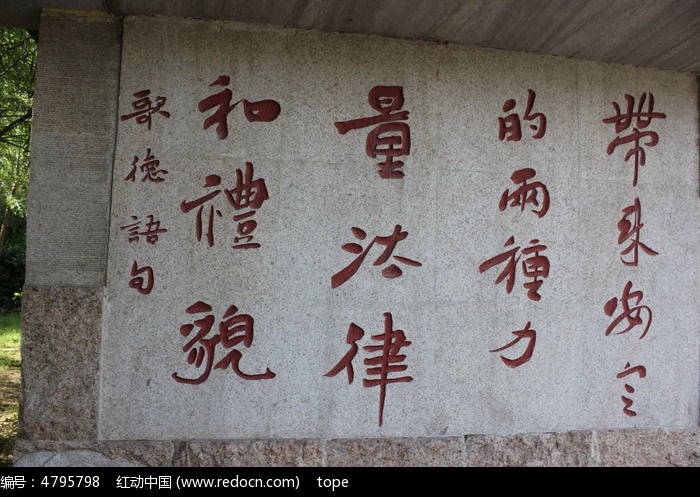 帶来安定
的兩種力
量法律
和禮貌
歌德語句
编号：4795798 红动中国 (www.redocn.com) tope